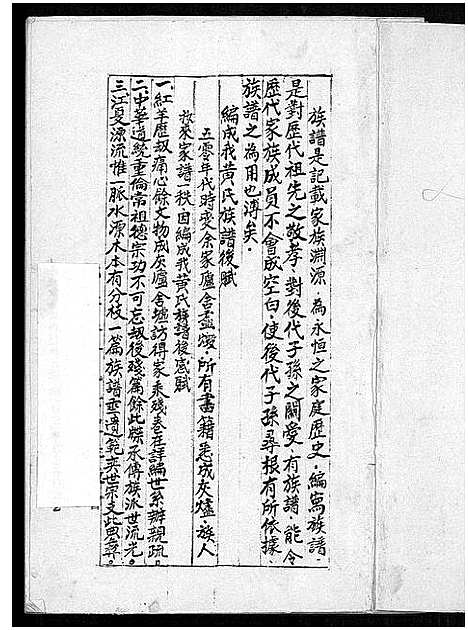 族譜是記載家族淵源．為永恒之家庭歷史．編寫族譜．
是對歷代祖先之敬孝．對後代子孫之關愛．有族譜．能令
歷代家族成員不會成空白．使後代子孫尋根有所依據．
族譜之為用也溥矣．
編成我黃氏族譜後賦
五零年代時變余家廬舍盡燬．所有書籍悉成灰燼．族人
救來家譜一秩因編成我黃氏族譜後感賦
一紅羊歷刼痛心餘文物成灰廬舍墟訪得家乘殘卷在詳編世系辦親疏。
二中華道統重倫常祖德宗功不可忘刼後殘篇餘此牒承傳族派世流光。
三江夏源流惟一脈水源木本有分枝一篇族譜垂遺範奕世宗支此思尋。